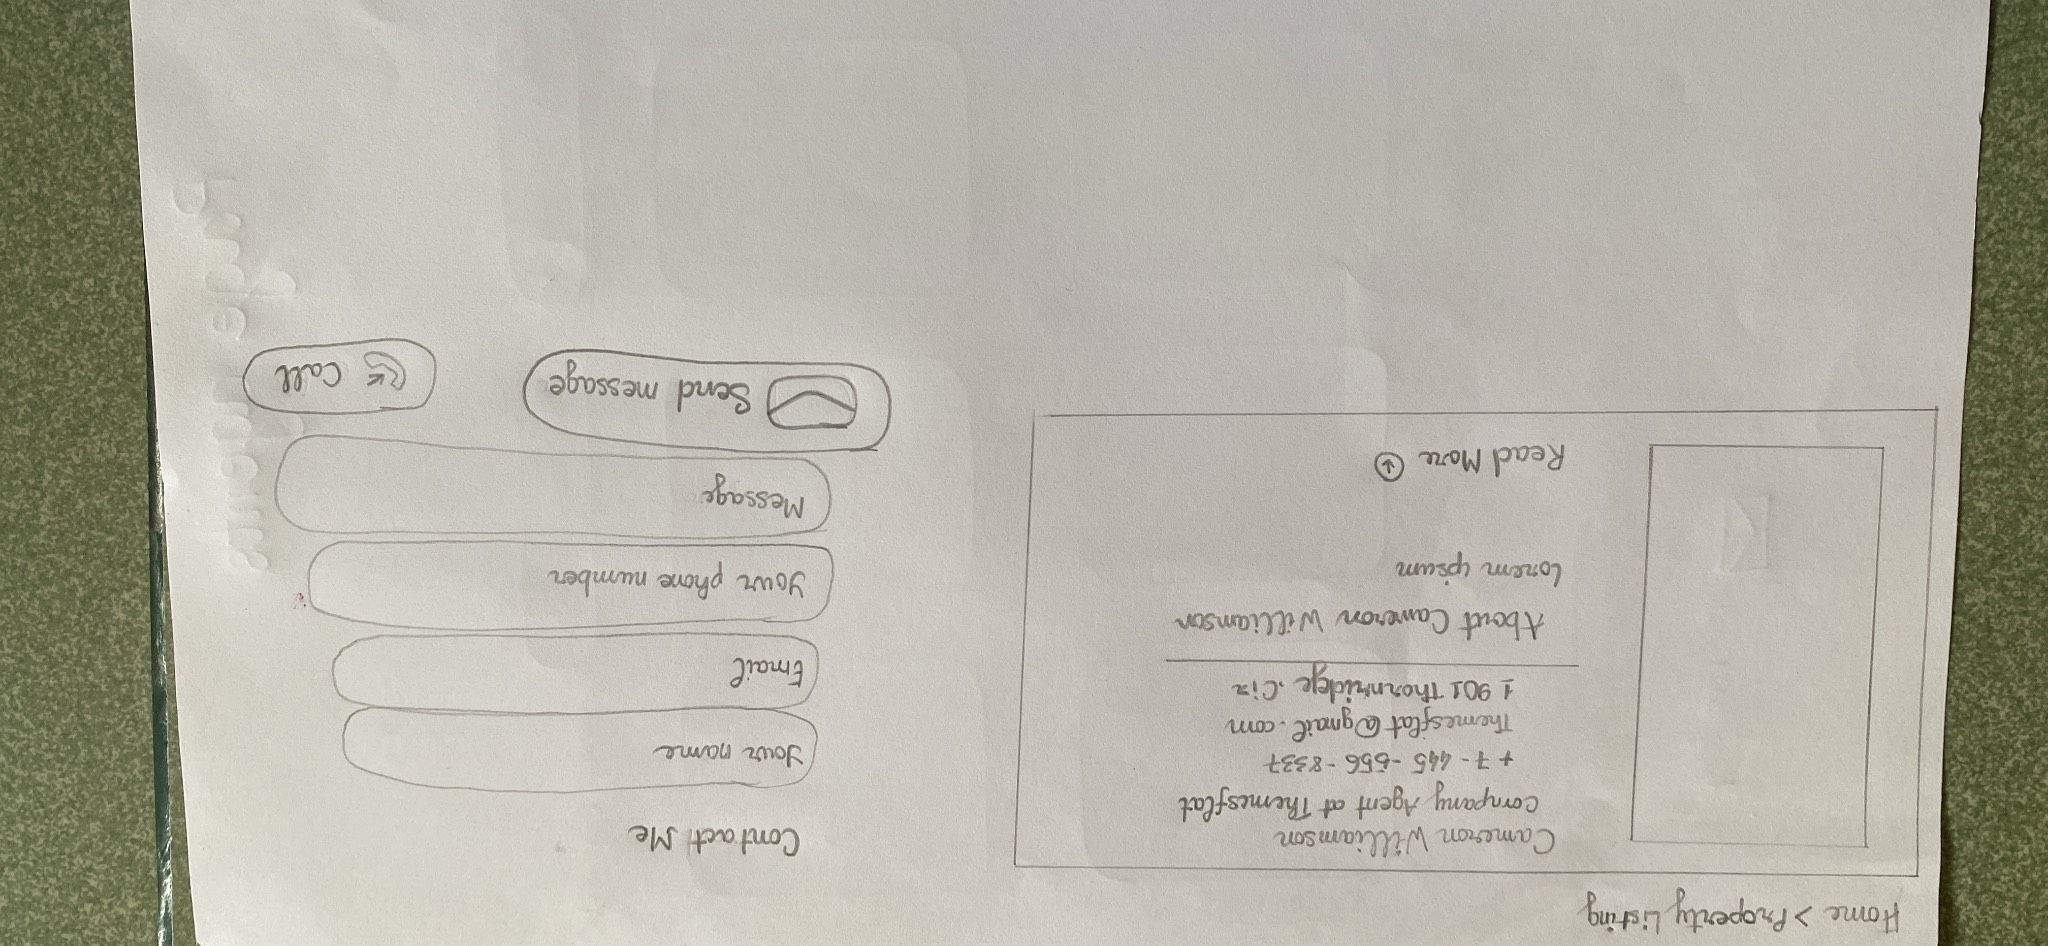 Home > Property Listing
Cameron Williamson
Company Agent at Themesflat
+ 7 - 445 - 556 - 8337
Themesflat@gmail.com
1901 Thornridge . Cir
About Cameron Williamson
Lorem ipsum
Read More
Contact Me
Your name
Email
Your phone number
Message
Send message
Call